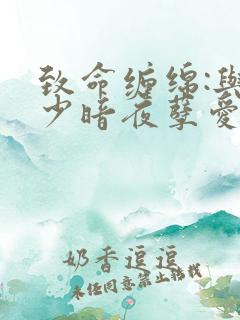 致命缠绵:与
少暗夜孽爱
奶香逗逗
未经同意禁止转载